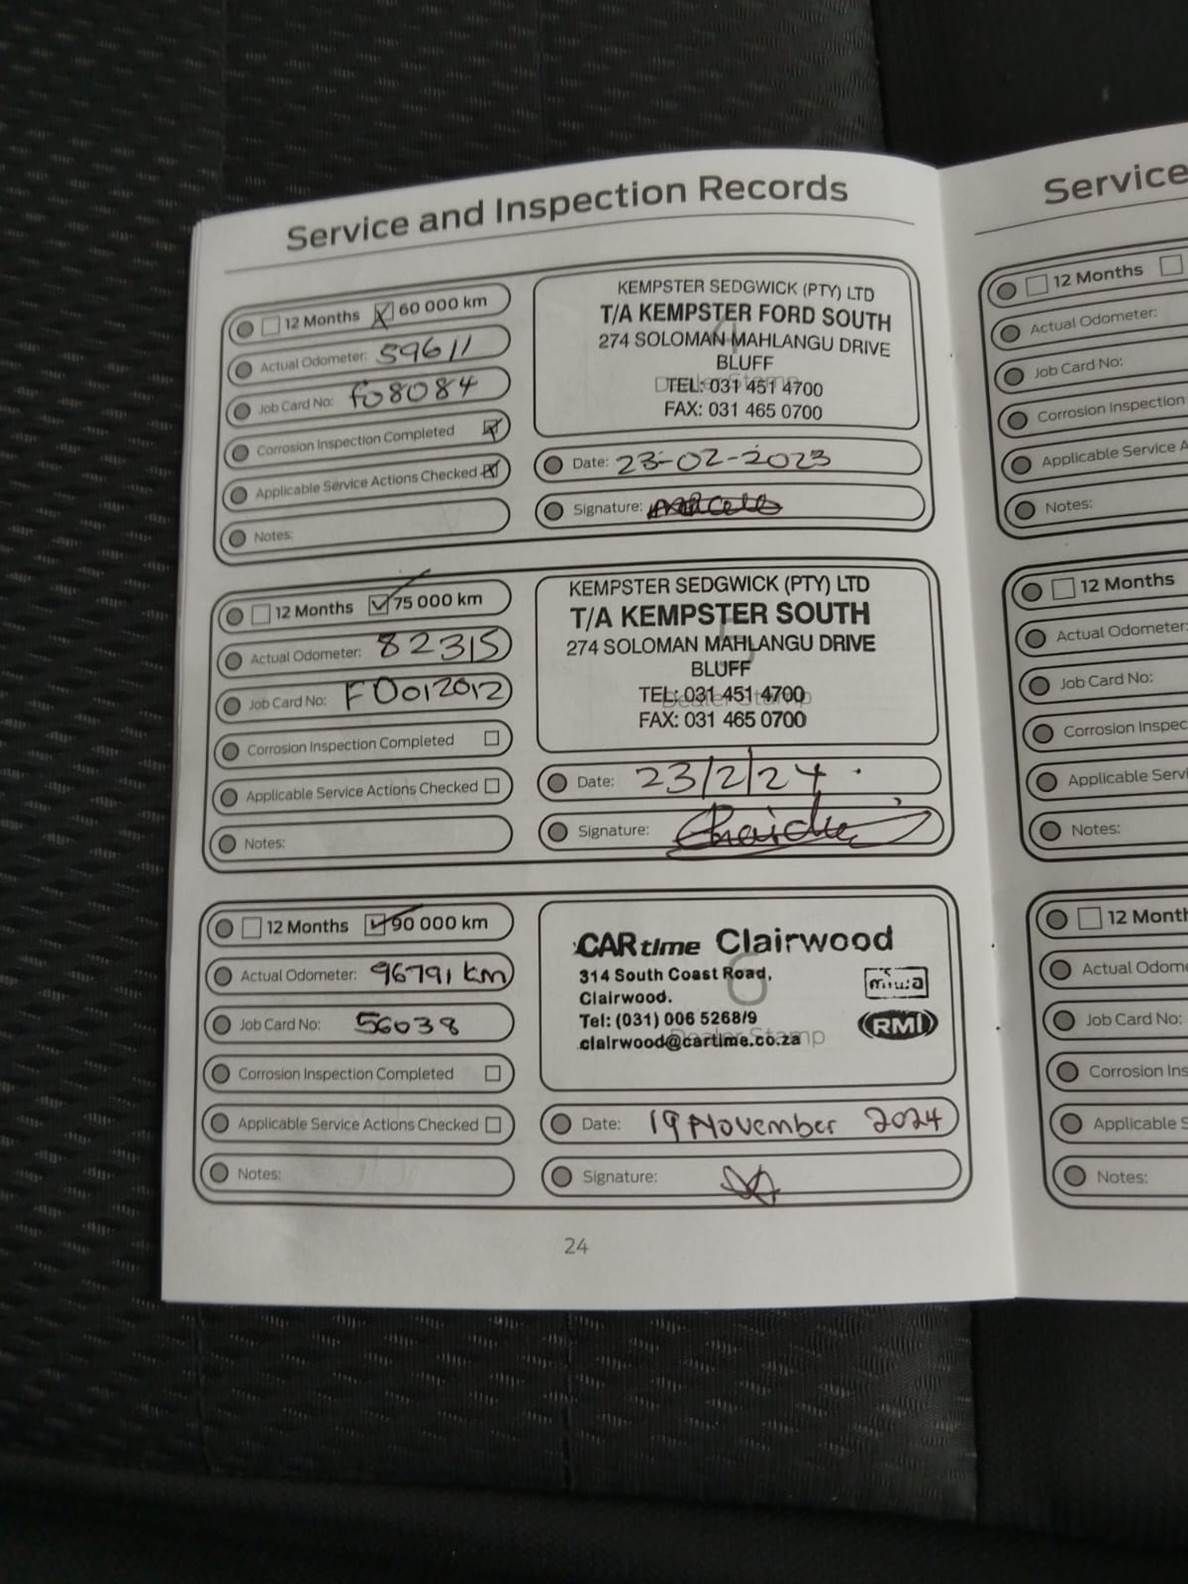 Service and Inspection Records
12 Months 60 000 km
Actual Odometer: 59611
Job Card No: f08084
Corrosion Inspection Completed
Applicable Service Actions Checked
Notes:
KEMPSTER SEDGWICK (PTY) LTD
T/A KEMPSTER FORD SOUTH
274 SOLOMAN MAHLANGU DRIVE
BLUFF
TEL: 031 451 4700
FAX: 031 465 0700
Date: 23-02-2023
Signature:
12 Months 75 000 km
Actual Odometer: 82315
Job Card No: F0012012
Corrosion Inspection Completed
Applicable Service Actions Checked
Notes:
KEMPSTER SEDGWICK (PTY) LTD
T/A KEMPSTER SOUTH
274 SOLOMAN MAHLANGU DRIVE
BLUFF
TEL: 031 451 4700
FAX: 031 465 0700
5
Dealer Stamp
Date: 23/2/24
Signature:
12 Months 90 000 km
Actual Odometer: 96791 km
Job Card No: 56038
Corrosion Inspection Completed
Applicable Service Actions Checked
Notes:
CARtime Clairwood
314 South Coast Road,
Clairwood.
Tel: (031) 006 5268/9
clairwood@cartime.co.za
RMI
6
Dealer Stamp
Date: 19 November 2024
Signature:
24
Service
12 Months
Actual Odometer:
Job Card No:
Corrosion Inspection
Applicable Service
Notes:
12 Months
Actual Odometer:
Job Card No:
Corrosion
Applicable
Notes:
12
Actual
Job Card No:
Corrosion
Applicable
Notes: